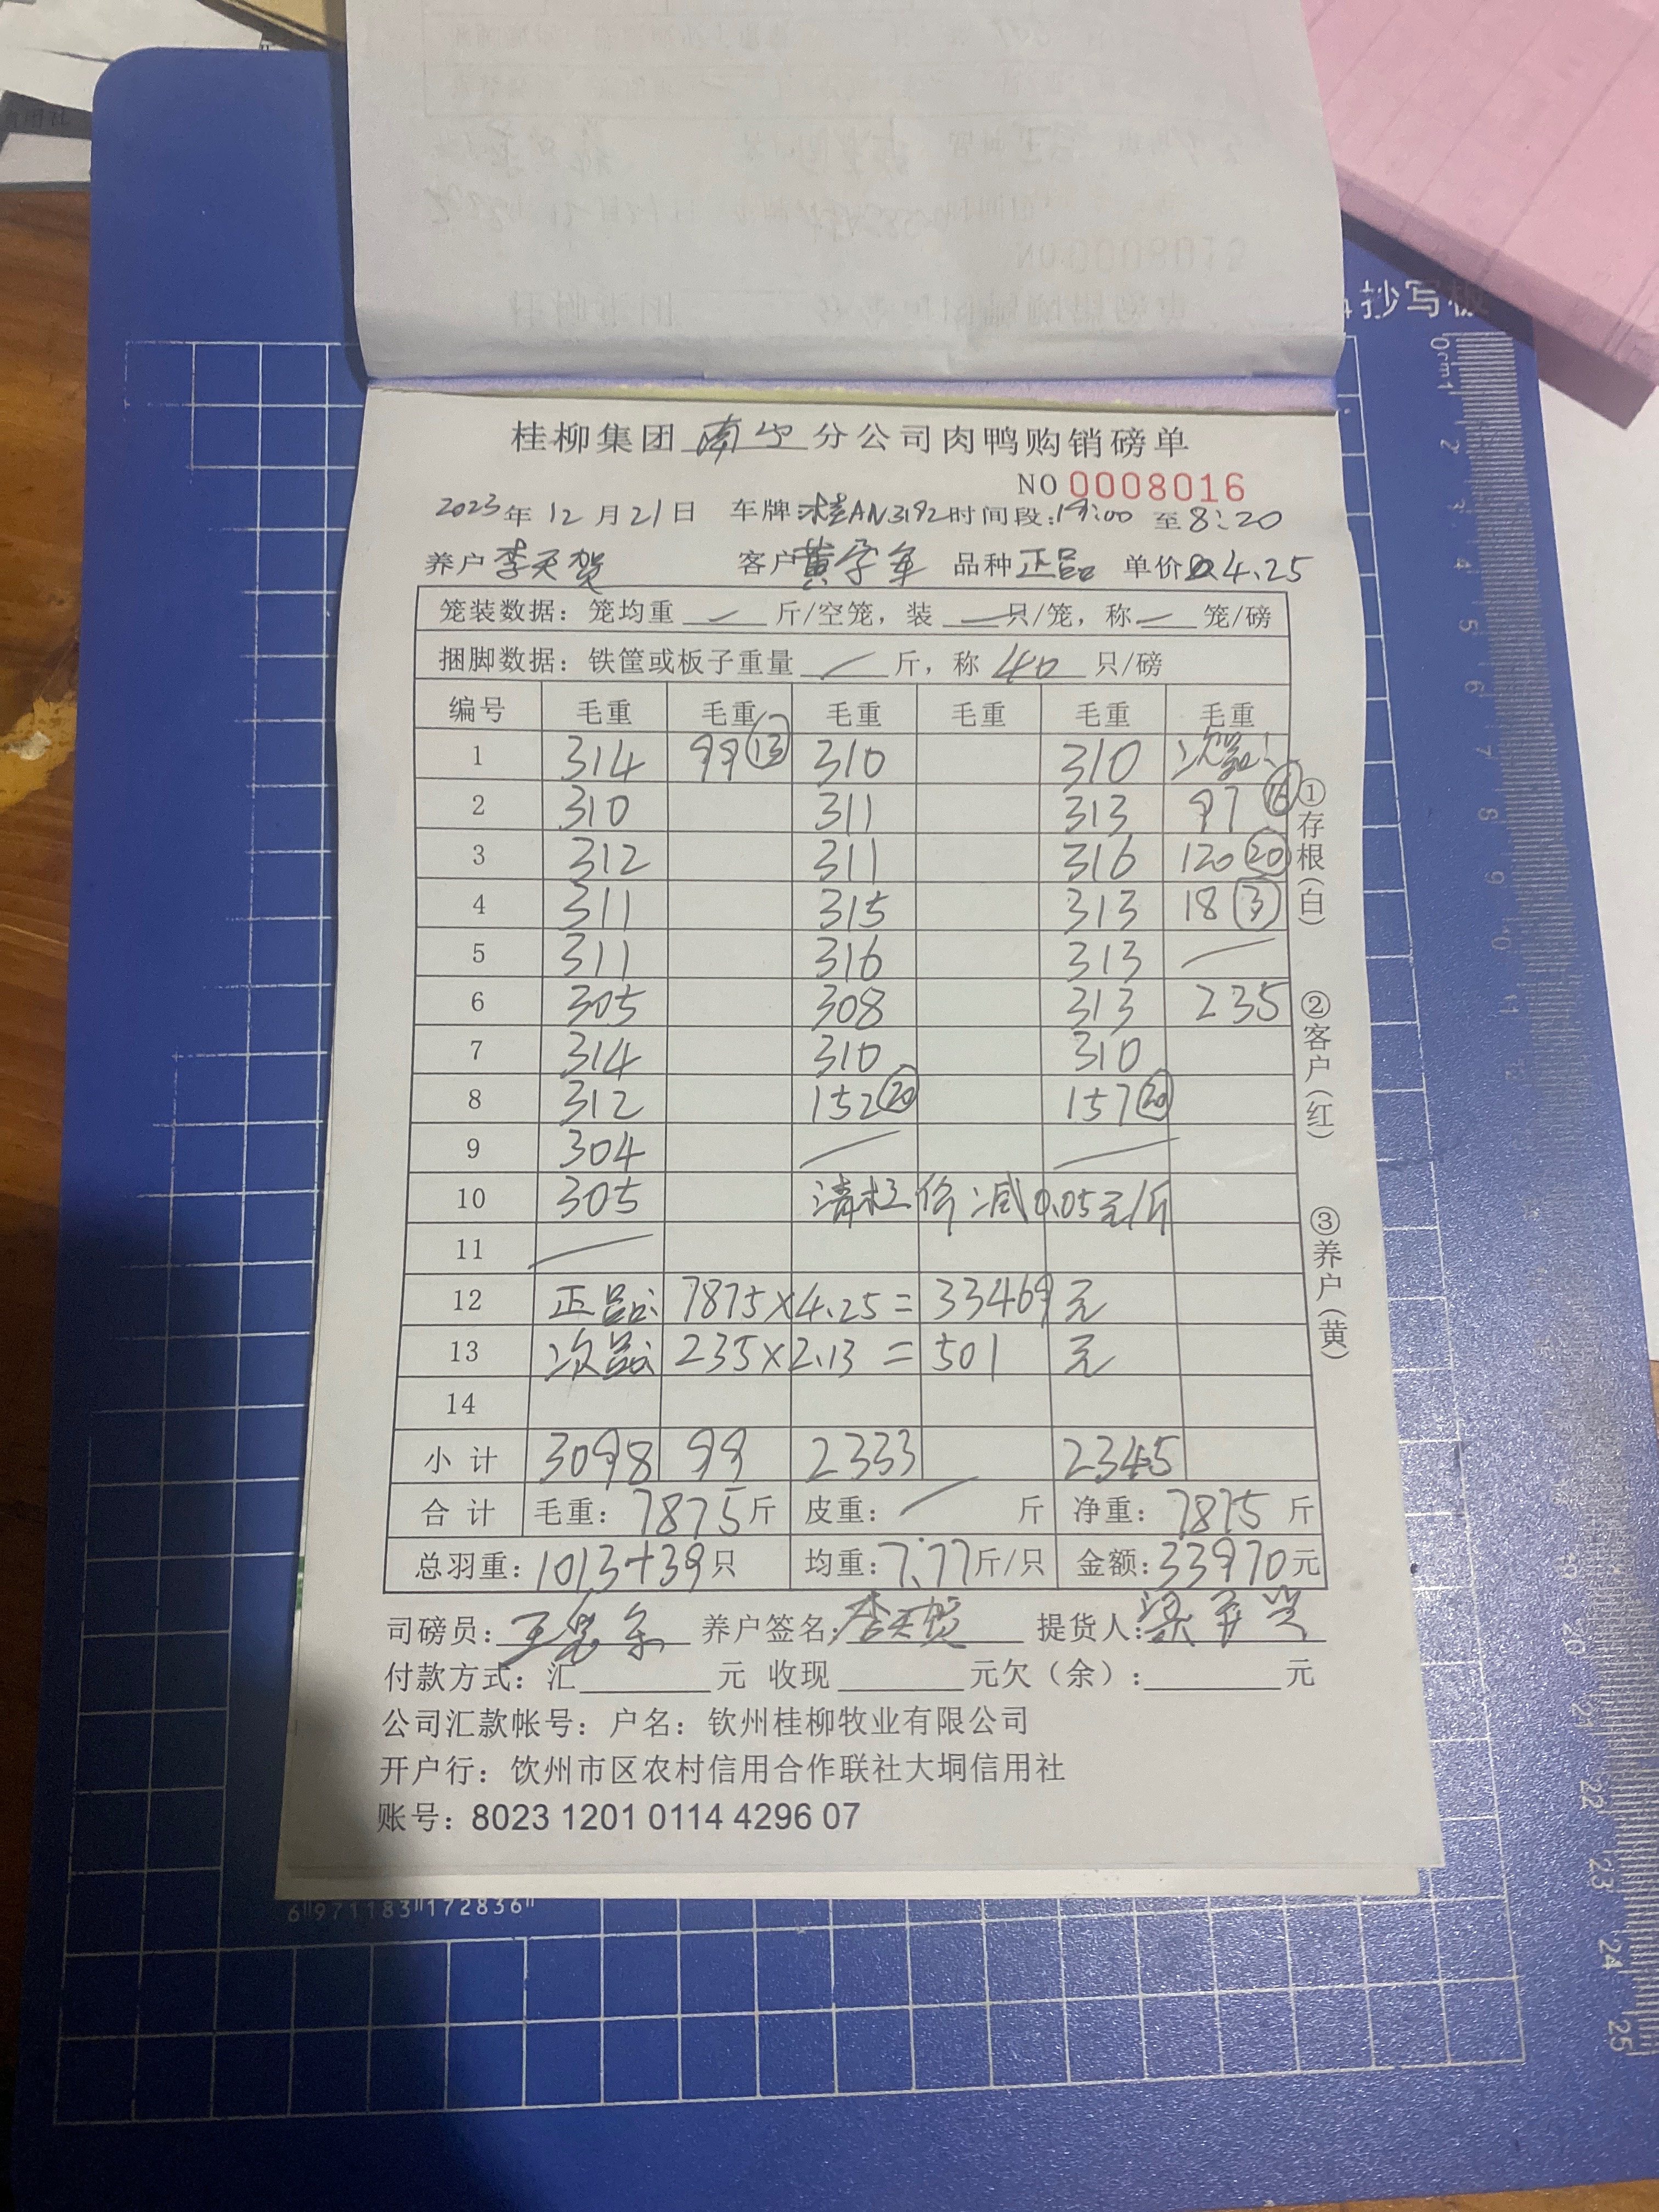 抄写板
桂柳集团 南宁 分公司肉鸭购销磅单
NO 0008016
2023年12月21日 车牌:桂AN3192 时间段:19:00 至8:20
养户 李天贺 客户 黄学军 品种 正品 单价 4.25
笼装数据：笼均重 / 斤/空笼，装 / 只/笼，称 / 笼/磅
捆脚数据：铁筐或板子重量 / 斤，称 40 只/磅
编号 毛重 毛重 毛重 毛重 毛重 毛重
1 314 99⑬ 310 310 次品:
2 310 311 313 97⑯
3 312 311 316 120⑳
4 311 315 313 18③
5 311 316 313 /
6 305 308 313 235
7 314 310 310
8 312 152⑳ 157⑳
9 304 / /
10 305 清栏价减0.05元/斤
11 /
12 正品: 7875×4.25=33469元
13 次品: 235×2.13=501元
14
小计 3098 99 2333 2345
合计 毛重：7875斤 皮重：/ 斤 净重：7875斤
总羽重：1013+39只 均重：7.77斤/只 金额：33970元
①存根(白)
②客户(红)
③养户(黄)
司磅员： 养户签名：李天贺 提货人：
付款方式：汇 元 收现 元欠（余）： 元
公司汇款帐号：户名：钦州桂柳牧业有限公司
开户行：钦州市区农村信用合作联社大垌信用社
账号：8023 1201 0114 4296 07
6 971183 172836
0cm1 2 3 4 5 6 7 8 9 10 11 12 19 20 21 22 23 24 25